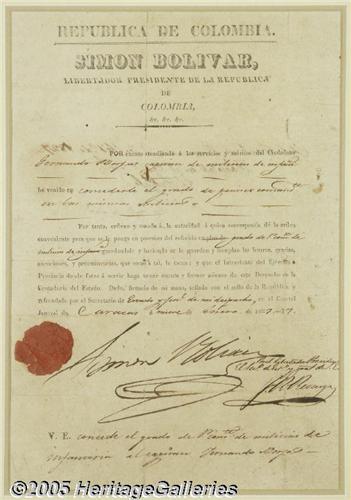 REPUBLICA DE COLOMBIA.
SIMON BOLIVAR,
LIBERTADOR PRESIDENTE DE LA REPUBLICA
DE
COLOMBIA,
&c. &c. &c.
POR cuanto atendiendo á los servicios y méritos del Ciudadano
Fernando capitan de milicias de
he venido en concederle el grado de primer comand.te
en las mismas milicias
Por tanto, ordeno y mando á la autoridad á quien corresponda dé la orden
conveniente para que se le ponga en posesion del referido grado de
milicias de guardandole y haciendo se le guarden y cumplan los fueros, gracias,
esenciones, y preeminencias, que como á tal, le tocan: y que el Intendente del Ejército ó
Provincia donde fuere á servir haga tomar razon y formar asiento de este Despacho en la
Contaduría del Estado. Dado, firmado de mi mano, sellado con el sello de la República y
refrendado por el Secretario de Estado y de mi despacho, en el Cuartel
Jeneral de Caracas enero de 1827. 17.
Simon Bolivar
El
J. R. Revenga
V. E. concede el grado de P. com.te de milicias de
infanteria al capitan Fernando
©2005 HeritageGalleries